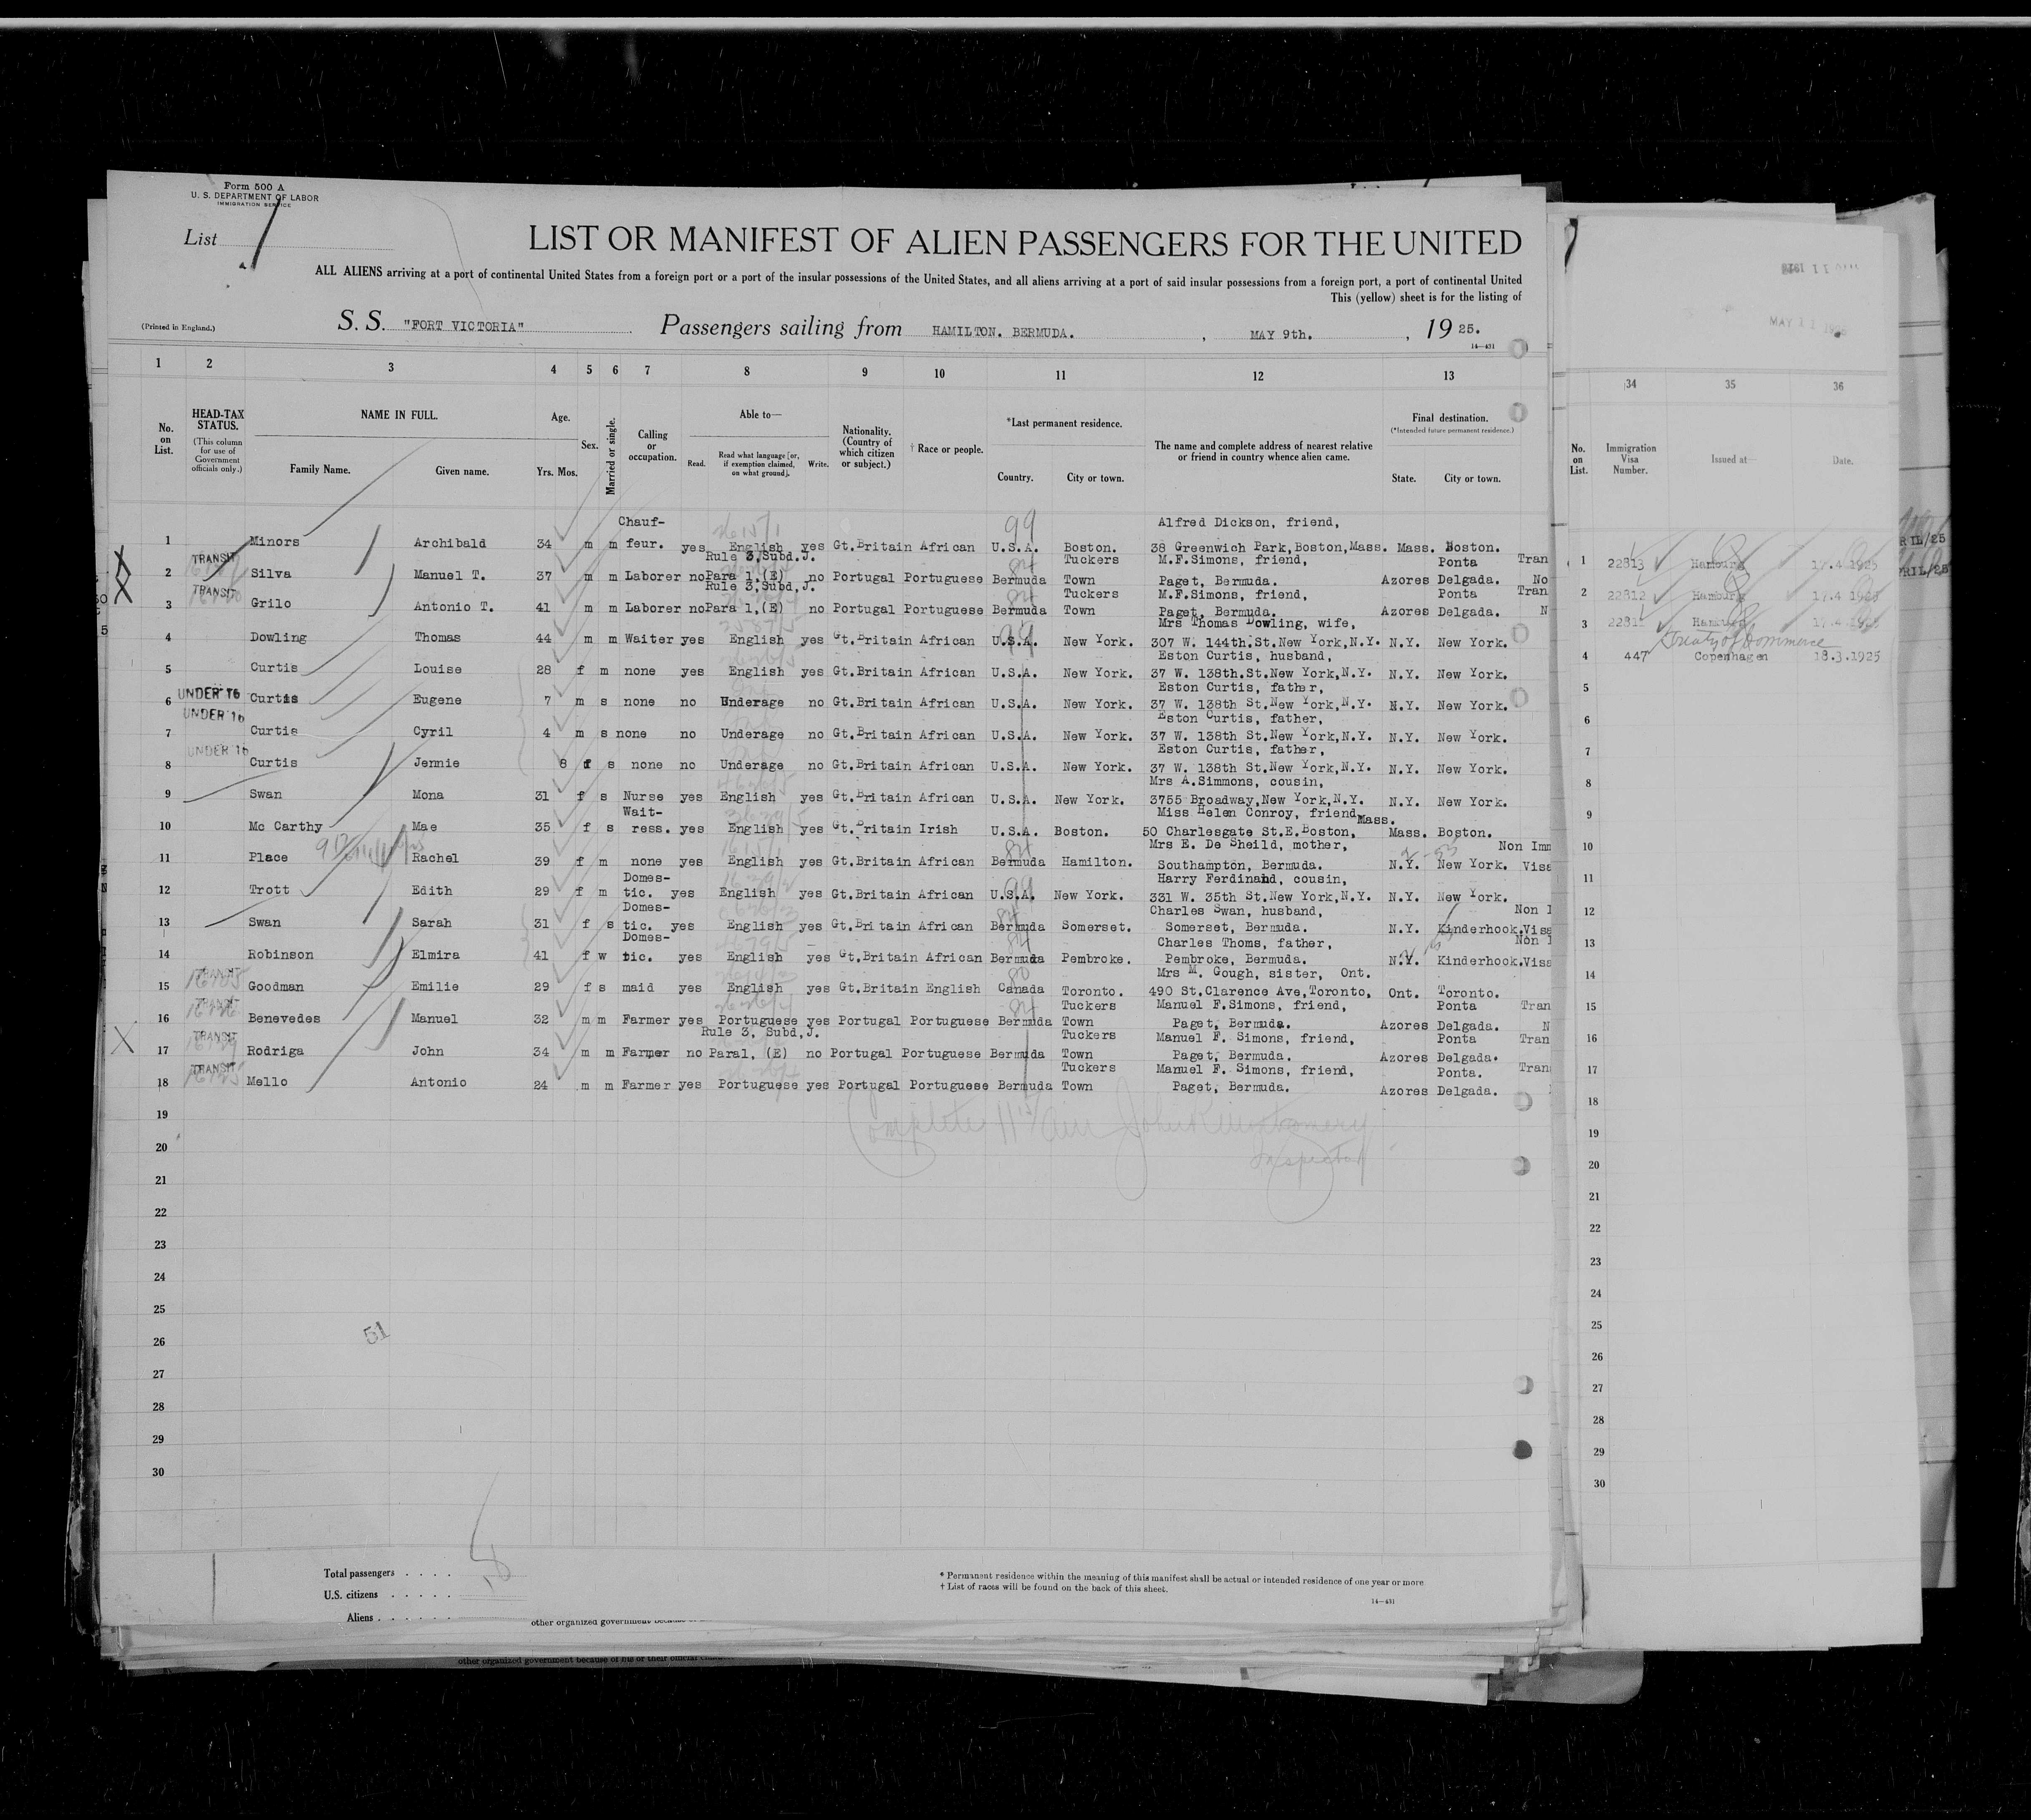 Form 500 A
U. S. DEPARTMENT OF LABOR
IMMIGRATION SERVICE
List 1
LIST OR MANIFEST OF ALIEN PASSENGERS FOR THE UNITED
ALL ALIENS arriving at a port of continental United States from a foreign port or a port of the insular possessions of the United States, and all aliens arriving at a port of said insular possessions from a foreign port, a port of continental United
This (yellow) sheet is for the listing of
(Printed in England.) S. S. "FORT VICTORIA" Passengers sailing from HAMILTON. BERMUDA. , MAY 9th. , 19 25.
14—431
1 2 3 4 5 6 7 8 9 10 11 12 13
No. on List.
HEAD-TAX STATUS. (This column for use of Government officials only.)
NAME IN FULL. Family Name. Given name.
Age. Yrs. Mos.
Sex.
Married or single.
Calling or occupation.
Able to— Read. Read what language [or, if exemption claimed, on what ground]. Write.
Nationality. (Country of which citizen or subject.)
† Race or people.
*Last permanent residence. Country. City or town.
The name and complete address of nearest relative or friend in country whence alien came.
Final destination. (*Intended future permanent residence.) State. City or town.
Chauf- Alfred Dickson, friend,
1 Minors Archibald 34 m m feur. yes English yes Gt.Britain African U.S.A. Boston. 38 Greenwich Park,Boston,Mass. Mass. Boston.
TRANSIT Rule 3,Subd.J. Tuckers M.F.Simons, friend, Ponta Tran
2 Silva Manuel T. 37 m m Laborer no Para 1,(E) no Portugal Portuguese Bermuda Town Paget, Bermuda. Azores Delgada. No
TRANSIT Rule 3,Subd,J. Tuckers M.F.Simons, friend, Ponta Tran
3 Grilo Antonio T. 41 m m Laborer no Para 1,(E) no Portugal Portuguese Bermuda Town Paget, Bermuda. Azores Delgada. N
Mrs Thomas Dowling, wife,
4 Dowling Thomas 44 m m Waiter yes English yes Gt.Britain African U.S.A. New York. 307 W. 144th.St.New York,N.Y. N.Y. New York.
Eston Curtis, husband,
5 Curtis Louise 28 f m none yes English yes Gt.Britain African U.S.A. New York. 37 W. 138th.St.New York,N.Y. N.Y. New York.
UNDER 16 Eston Curtis, father,
6 Curtis Eugene 7 m s none no Underage no Gt.Britain African U.S.A. New York. 37 W. 138th St.New York,N.Y. N.Y. New York.
UNDER 16 Eston Curtis, father,
7 Curtis Cyril 4 m s none no Underage no Gt.Britain African U.S.A. New York. 37 W. 138th St.New York,N.Y. N.Y. New York.
UNDER 16 Eston Curtis, father,
8 Curtis Jennie 8 f s none no Underage no Gt.Britain African U.S.A. New York. 37 W. 138th St.New York,N.Y. N.Y. New York.
Mrs A.Simmons, cousin,
9 Swan Mona 31 f s Nurse yes English yes Gt.Britain African U.S.A. New York. 3755 Broadway,New York,N.Y. N.Y. New York.
Wait- Miss Helen Conroy, friend, Mass.
10 Mc Carthy Mae 35 f s ress. yes English yes Gt.Britain Irish U.S.A. Boston. 50 Charlesgate St.E.Boston, Mass. Boston.
Mrs E. De Sheild, mother, Non Imm
11 Place Rachel 39 f m none yes English yes Gt.Britain African Bermuda Hamilton. Southampton, Bermuda. N.Y. New York. Visa
Domes- Harry Ferdinand, cousin,
12 Trott Edith 29 f m tic. yes English yes Gt.Britain African U.S.A. New York. 331 W. 35th St.New York,N.Y. N.Y. New York.
Domes- Charles Swan, husband, Non I
13 Swan Sarah 31 f s tic. yes English yes Gt.Britain African Bermuda Somerset. Somerset, Bermuda. N.Y. Kinderhook.Visa
Domes- Charles Thoms, father, Non I
14 Robinson Elmira 41 f w tic. yes English yes Gt.Britain African Bermuda Pembroke. Pembroke, Bermuda. N.Y. Kinderhook.Visa
TRANSIT Mrs M. Gough, sister, Ont.
15 Goodman Emilie 29 f s maid yes English yes Gt.Britain English Canada Toronto. 490 St.Clarence Ave,Toronto, Ont. Toronto.
TRANSIT Tuckers Manuel F.Simons, friend, Ponta Tran
16 Benevedes Manuel 32 m m Farmer yes Portuguese yes Portugal Portuguese Bermuda Town Paget, Bermuda. Azores Delgada. N
TRANSIT Rule 3, Subd,J. Tuckers Manuel F. Simons, friend, Ponta Tran
17 Rodriga John 34 m m Farmer no Para1, (E) no Portugal Portuguese Bermuda Town Paget, Bermuda. Azores Delgada.
TRANSIT Tuckers Manuel F. Simons, friend, Ponta. Tran
18 Mello Antonio 24 m m Farmer yes Portuguese yes Portugal Portuguese Bermuda Town Paget, Bermuda. Azores Delgada.
Inspector
19
20
21
22
23
24
25
26
51
27
28
29
30
Total passengers . . . .
U.S. citizens . . . . .
Aliens . . . . . .
* Permanent residence within the meaning of this manifest shall be actual or intended residence of one year or more
† List of races will be found on the back of this sheet.
14—431
other organized government because
other organized government because of his or their official
MAY 11 1925
34 35 36
No. on List.
Immigration Visa Number.
Issued at—
Date.
1 22813 Hamburg 17.4 1925
2 22812 Hamburg 17.4 1925
3 Hamburg
Treaty of Commerce
4 447 Copenhagen 18.3.1925
5
6
7
8
9
10
11
12
13
14
15
16
17
18
19
20
21
22
23
24
25
26
27
28
29
30
RIL/25
PRIL/25